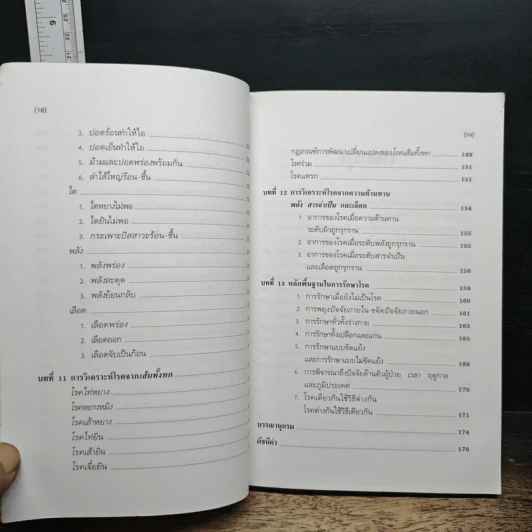 (18)
3. ปอดร้อนทำให้ไอ
4. ปอดเย็นทำให้ไอ
5. ม้ามและปอดพร่องพร้อมกัน
6. ลำไส้ใหญ่ร้อน-ชื้น
ไต
1. ไตหยางไม่พอ
2. ไตยินไม่พอ
3. กระเพาะปัสสาวะร้อน-ชื้น
พลัง
1. พลังพร่อง
2. พลังสะดุด
3. พลังย้อนกลับ
เลือด
1. เลือดพร่อง
2. เลือดออก
3. เลือดจับเป็นก้อน
บทที่ 11 การวิเคราะห์โรคจากเส้นทั้งหก
โรคไท่หยาง
โรคหยางหมิง
โรคเส้าหยาง
โรคไท่ยิน
โรคเส้ายิน
โรคเจี๋ยยิน
(19)
กฎเกณฑ์การพัฒนาเปลี่ยนแปลงของโรคเส้นทั้งหก 149
โรคร่วม 151
โรคแทรก 151
บทที่ 12 การวิเคราะห์โรคจากความต้านทาน
พลัง สารจำเป็น และเลือด 154
1. อาการของโรคเมื่อความต้านทาน
ระดับผิวถูกรุกราน 155
2. อาการของโรคเมื่อระดับพลังถูกรุกราน 155
3. อาการของโรคเมื่อระดับสารจำเป็น
และเลือดถูกรุกราน 156
บทที่ 13 หลักพื้นฐานในการรักษาโรค 159
1. การรักษาเมื่อยังไม่เป็นโรค 160
2. การพยุงปัจจัยภายใน-ขจัดปัจจัยภายนอก 161
3. การรักษาทั่วทั้งร่างกาย
4. การรักษาทั้งเปลือกและแก่น 165
5. การรักษาแบบขัดแย้ง
และการรักษาแบบไม่ขัดแย้ง
6. การพิจารณาถึงปัจจัยด้านตัวผู้ป่วย เวลา ฤดูกาล
และภูมิประเทศ 170
7. โรคเดียวกันใช้วิธีต่างกัน
โรคต่างกันใช้วิธีเดียวกัน 171
บรรณานุกรม 174
ดัชนีคำ 176